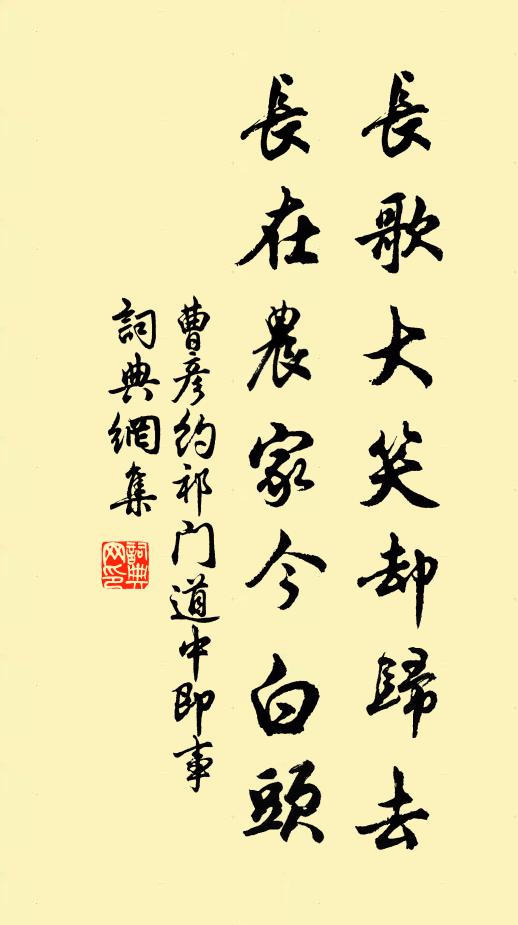 長歌大笑却歸去
長在農家今白頭
曹彦約祁門道中即事
詞典網集
詞典網印